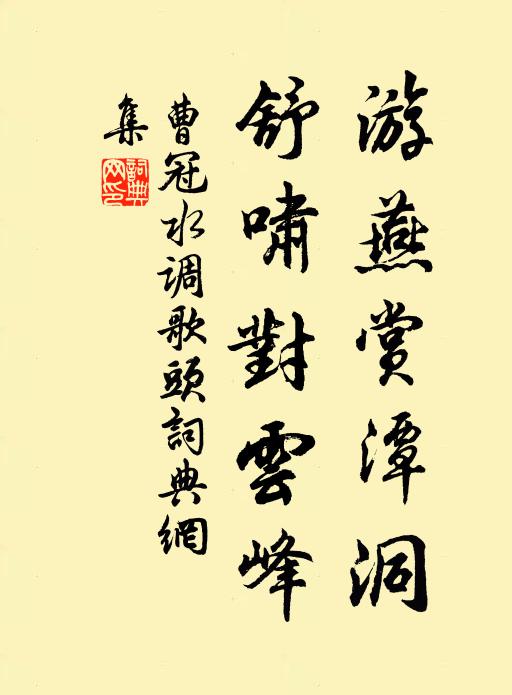 游燕賞潭洞
舒嘯對雲峰
曹冠水调歌頭詞典網
集
詞典
网印